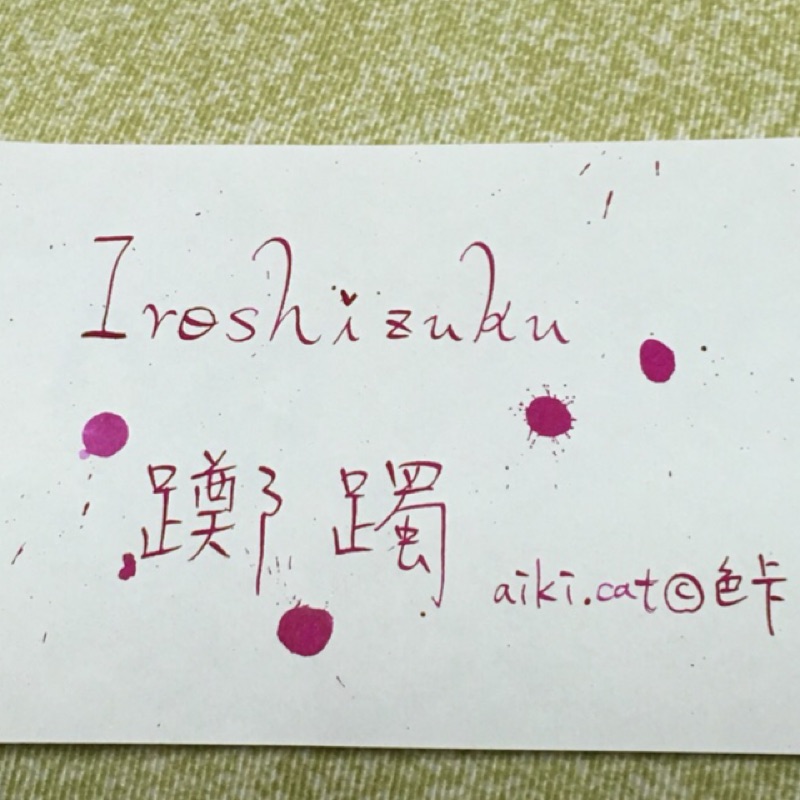 Iroshizuku
躑躅
aiki.cat©色卡